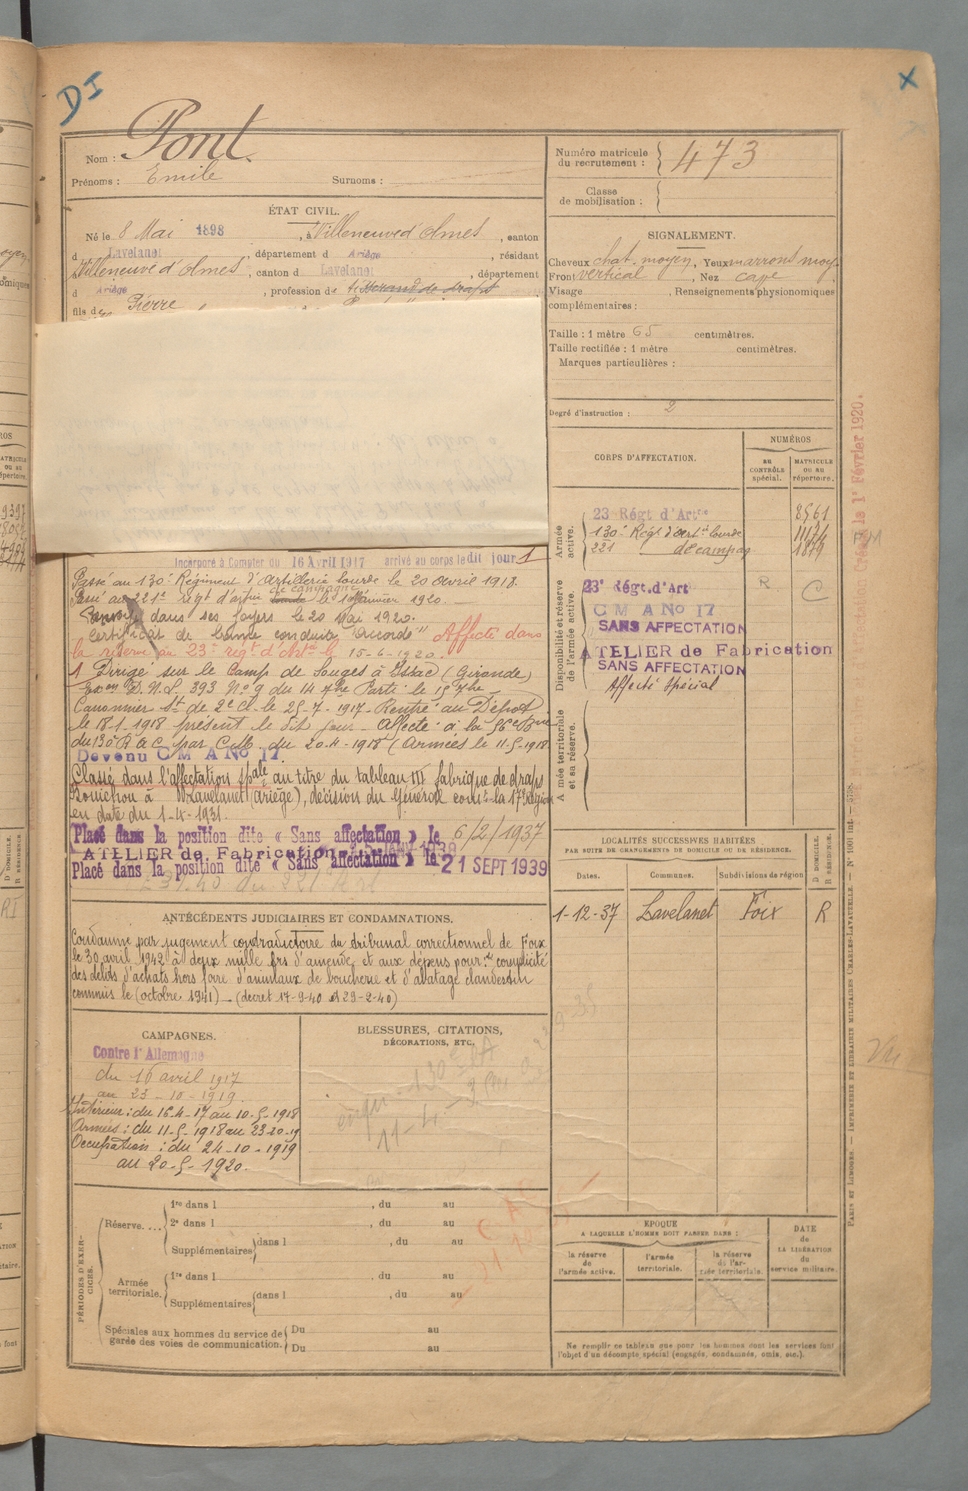 DI
X
Nom : Pont
Prénoms : Emile Surnoms :
Numéro matricule du recrutement : 473
Classe de mobilisation :
ÉTAT CIVIL.
Né le 8 Mai 1898, à Villeneuve d'Olmes, canton
d Lavelanet, département d Ariège, résidant
à Villeneuve d'Olmes, canton d Lavelanet, département
d Ariège, profession de tisserand de draps
fils de Pierre
SIGNALEMENT.
Cheveux chat. moyen, Yeux marrons moy.
Front vertical, Nez cave
Visage , Renseignements physionomiques
complémentaires :
Taille : 1 mètre 65 centimètres.
Taille rectifiée : 1 mètre centimètres.
Marques particulières :
Degré d'instruction : 2
CORPS D'AFFECTATION.
NUMÉROS
AU CONTRÔLE spécial.
MATRICULE OU AU répertoire.
Armée active.
23 Régt d'Artie 2561
130e Régt d'art ie lourde
221 de campag 1879
Disponibilité et réserve de l'armée active.
23e Régt. d'Art R C
C M A No 17
SANS AFFECTATION
ATELIER de Fabrication
SANS AFFECTATION
Affecté Spécial
Armée territoriale et sa réserve.
Incorporé à Compter du 16 Avril 1917 arrivé au corps le dit jour 1
Passé au 130e Régiment d'Artillerie lourde le 20 avril 1918.
Passé au 221e régt d'art de campagne le 1 Janvier 1920.
Renvoyé dans ses foyers le 20 Mai 1920.
Certificat de bonne conduite "accordé" Affecté dans
la réserve au 23e régt d'Art ie le 15-6-1920.
1 Dirigé sur le Camp de Souges à Issac (Gironde)
Ex on D.M.S. 393 No 9 du 14 7bre Parti le 15 7bre
Canonnier St de 2e Cl. le 25-7-1917. Rentré au Dépôt
le 18-1-1918 présent le dit jour. Affecté à la 56e Bie
du 130 R.A.C. par C.M. du 20-4-1918 (Armées le 11-5-1918
Devenu C M A No 17.
Classé dans l'affectation spale au titre du tableau III fabrique de draps
à Lavelanet (Ariège), décision du Général comt la 17e région
en date du 1-4-1931.
Placé dans la position dite « Sans affectation » le 6/2/1937
ATELIER de Fabrication
Placé dans la position dite « Sans affectation » le 21 SEPT 1939
ANTÉCÉDENTS JUDICIAIRES ET CONDAMNATIONS.
Condamné par jugement contradictoire du tribunal correctionnel de Foix
le 30 avril 1942 à deux mille frs d'amende et aux dépens pour : complicité
des délits d'achats hors foire d'animaux de boucherie et d'abatage clandestin
commis le (octobre 1941) - (decret 17-9-40 et 29-2-40)
LOCALITÉS SUCCESSIVES HABITÉES
PAR SUITE DE CHANGEMENTS DE DOMICILE OU DE RÉSIDENCE.
Dates. Communes. Subdivisions de région D DOMICILE. R RÉSIDENCE.
1-12-37 Lavelanet Foix R
CAMPAGNES.
Contre l'Allemagne
du 16 avril 1917
au 23-10-1919.
Intérieur : du 16-4-17 au 10-5-1918
Armées : du 11-5-1918 au 23-10-19
Occupation : du 24-10-1919
au 20-5-1920.
BLESSURES, CITATIONS,
DÉCORATIONS, ETC.
PÉRIODES D'EXERCICES.
Réserve....
1re dans l , du au
2e dans l , du au
Supplémentaires dans l , du au
Armée territoriale.
1re dans l , du au
Supplémentaires dans l , du au
Spéciales aux hommes du service de garde des voies de communication.
Du au
Du au
ÉPOQUE
A LAQUELLE L'HOMME DOIT PASSER DANS :
la réserve de l'armée active.
l'armée territoriale.
la réserve de l'armée territoriale.
DATE de LA LIBÉRATION du service militaire.
Ne remplir ce tableau que pour les hommes dont les services font
l'objet d'un décompte spécial (engagés, condamnés, omis, etc.).
PARIS ET LIMOGES. — IMPRIMERIE ET LIBRAIRIE MILITAIRES CHARLES-LAVAUZELLE. — No 1001 int.